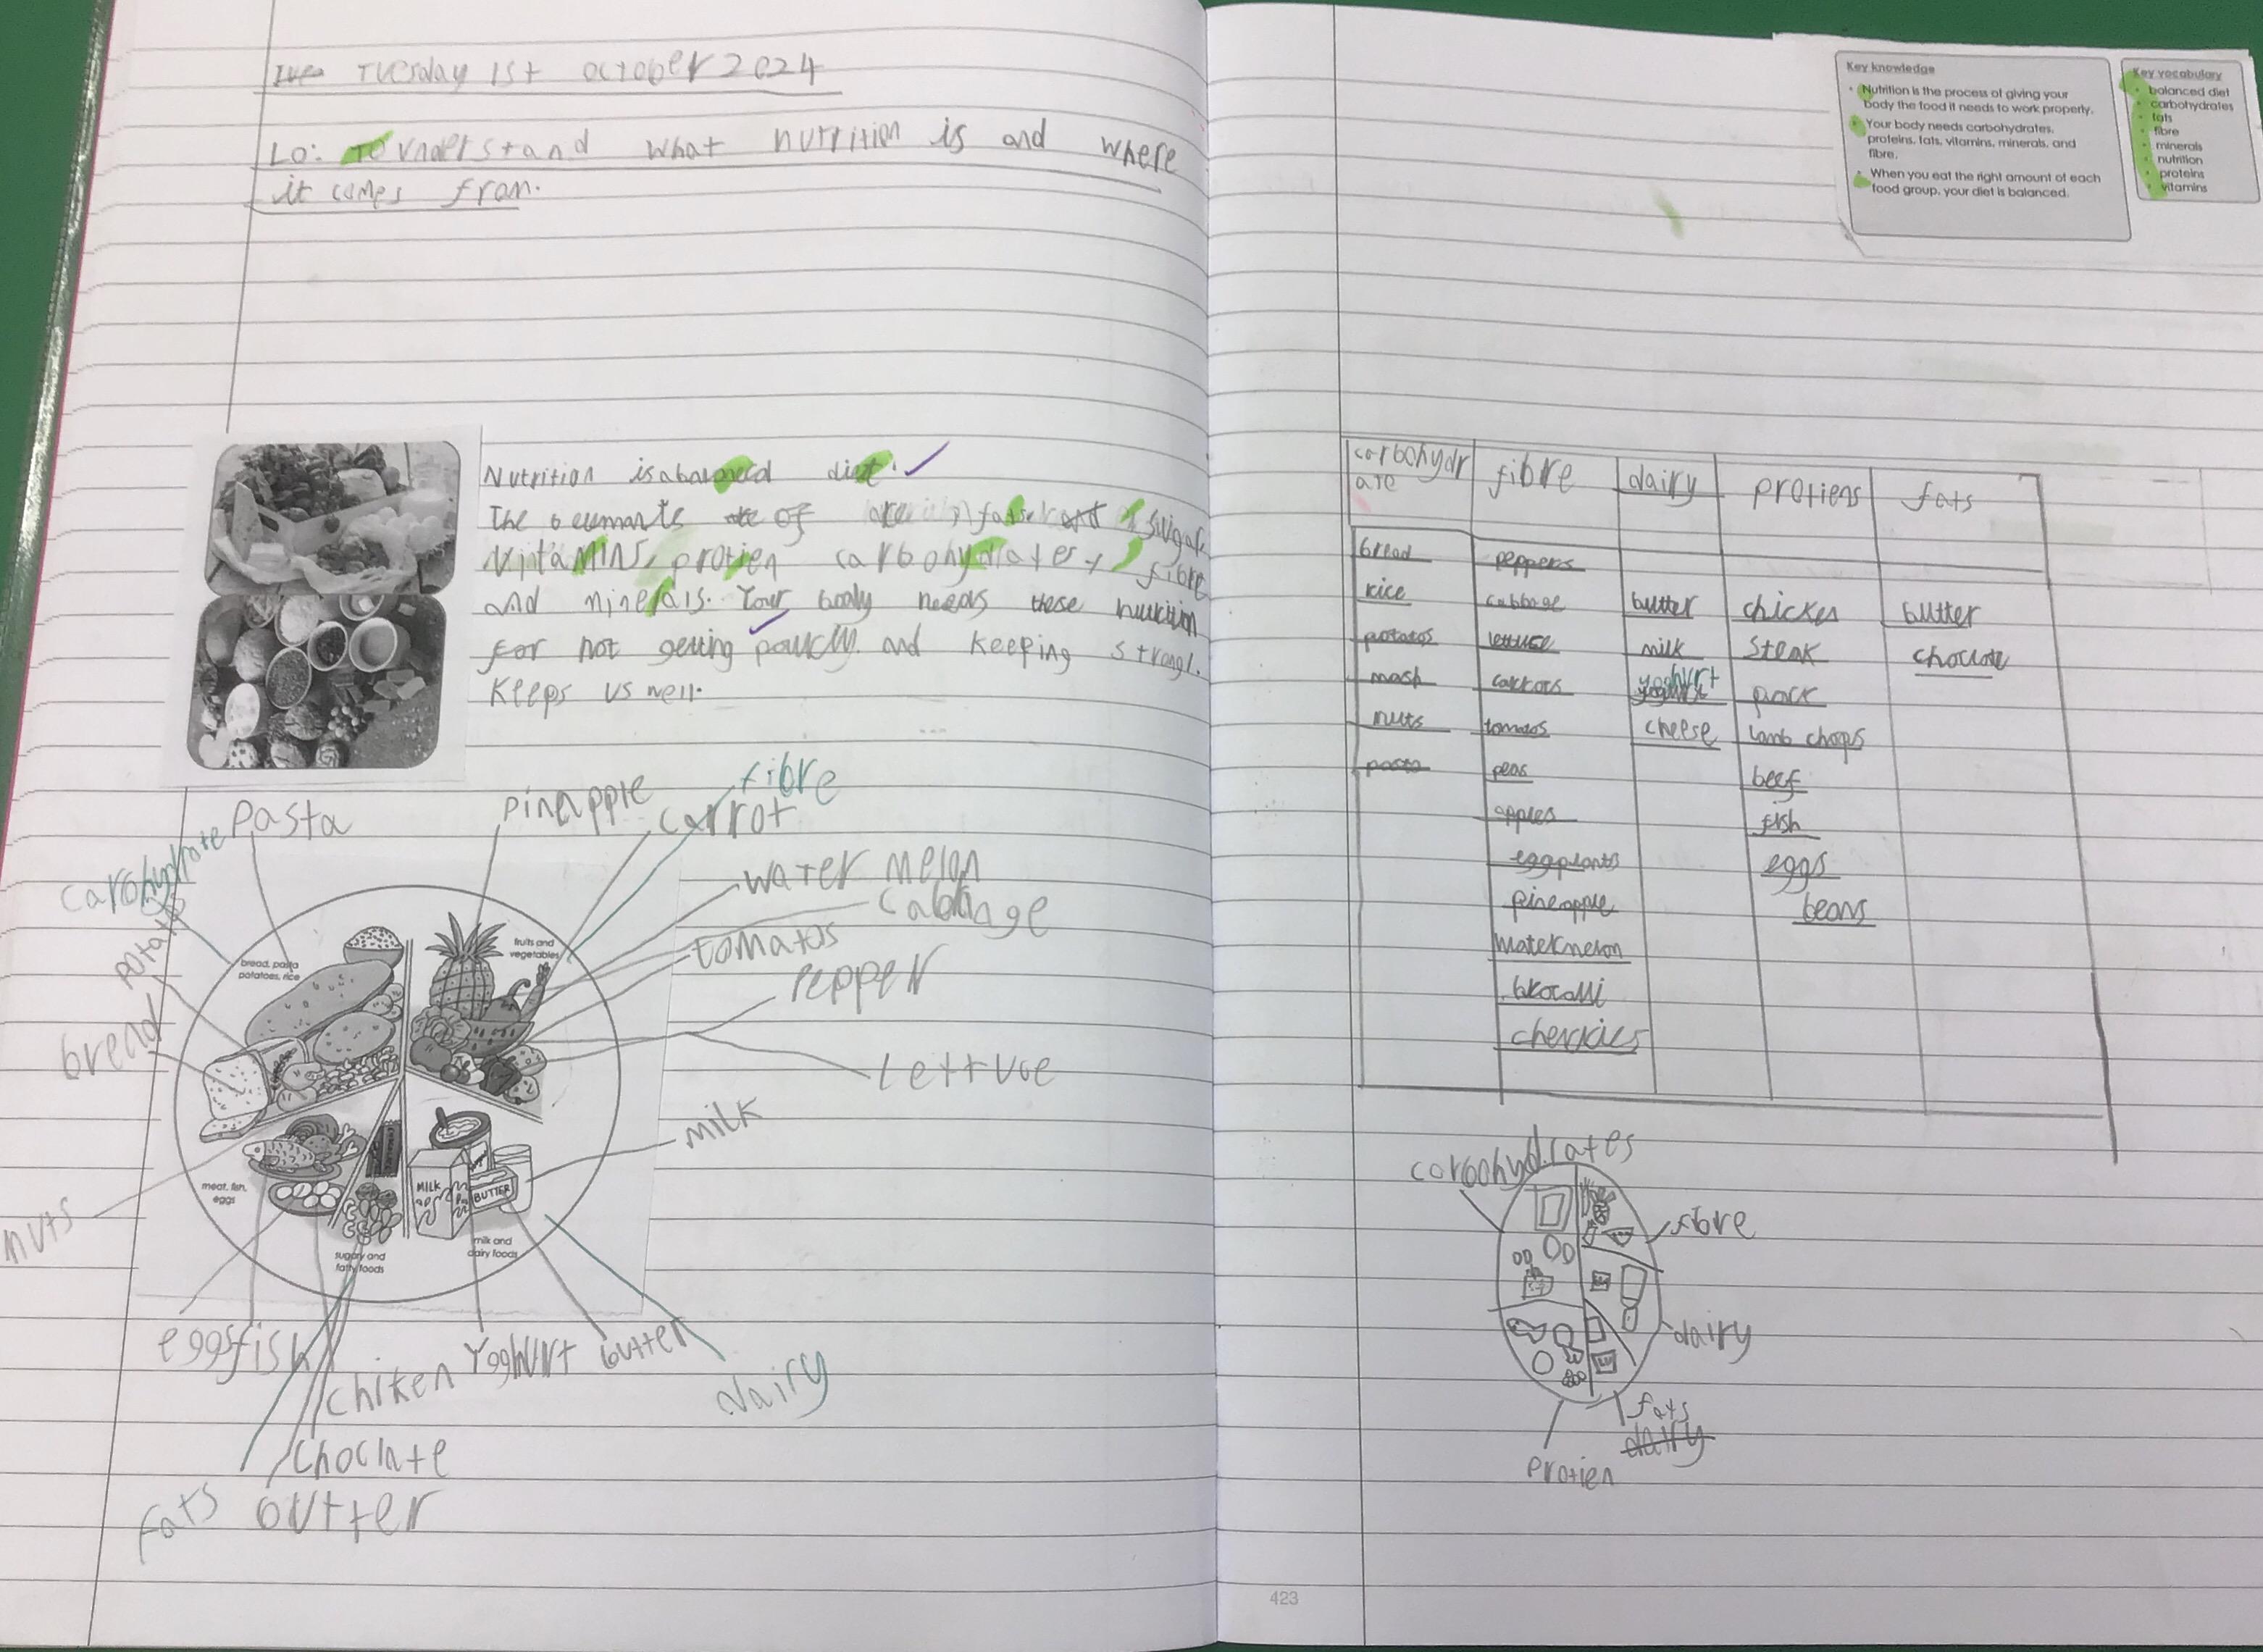 Tuesday 1st october 2024
Lo: To understand what nutrition is and where
it comes from.
Nutrition is a balanced diet.
The 6 of
protien carbohydrates, fibre
and minerals. Your body needs these nutrition
for not getting and keeping
Keeps us well.
pasta
pineapple
fibre
carrot
water melon
cabbange
tomatos
pepper
Lettuoe
milk
carohydrate
potato
bread
nuts
bread, pasta
potatoes, rice
fruits and
vegetables
meat, fish,
eggs
sugary and
fatty foods
milk and
dairy foods
MILK
BUTTER
eggs
fish
chiken
Yoghurt
butter
dairy
choclate
fats
butter
Key knowledge
• Nutrition is the process of giving your
body the food it needs to work properly.
• Your body needs carbohydrates,
proteins, fats, vitamins, minerals, and
fibre.
• When you eat the right amount of each
food group, your diet is balanced.
Key vocabulary
• balanced diet
• carbohydrates
• fats
• fibre
• minerals
• nutrition
• proteins
• vitamins
carbohydr fibre dairy protiens fats
ate
bread peppers
rice cabbage butter chicken butter
potatos lettuse milk steak choclate
mash carrots yoghurt
nuts tomatos cheese lamb chops
pasta peas beef
apples fish
eggplants eggs
pineapple beans
watermelon
brocalli
cherries
carbohydrates
fibre
dairy
fats
dairy
protien
423